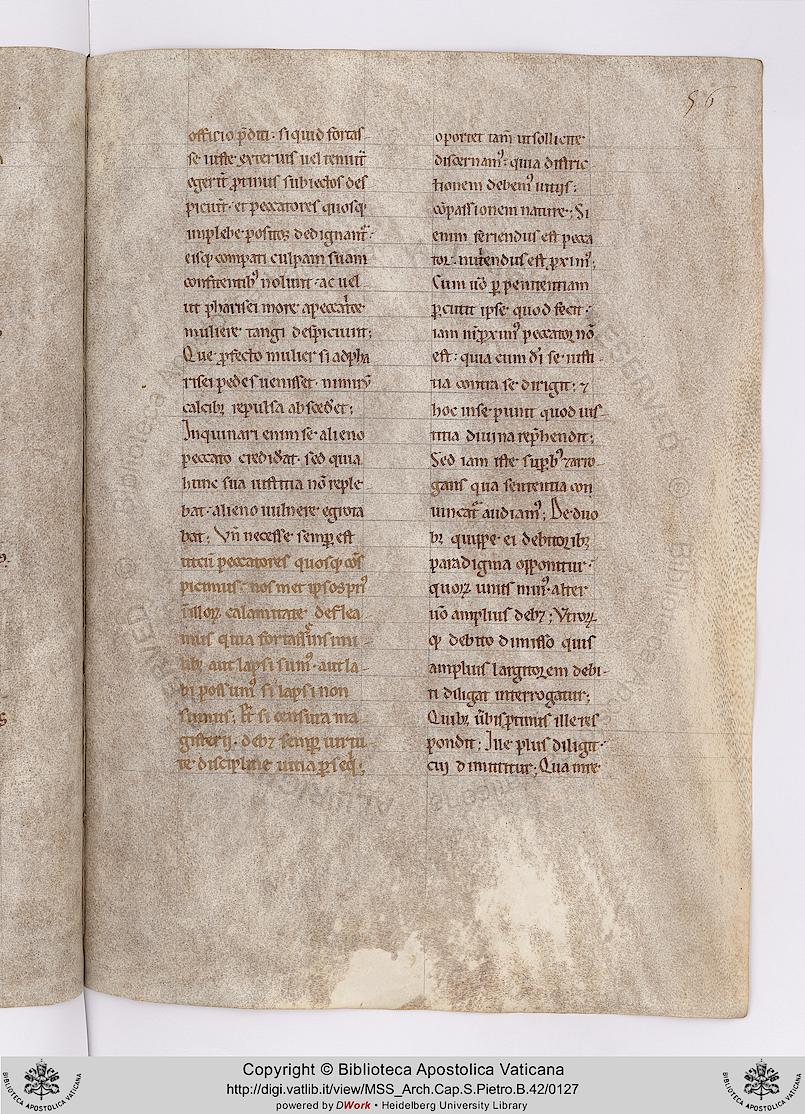 56
officio p̄diti: si quid fortas
se iuste exterius uel tenuit̄
egerit̄ ꝓtinus subiectos des
piciunt̄· et peccatores quosq;
in plebe positos dedignant̄·
eisq; compati culpam suam
confitentibꝰ nolunt· ac uel
ut pharisei more a peccat̾ce
muliere tangi despiciunt;
Que ꝓfecto mulier si ad pha
risei pedes uenisset· nimirū
calcibꝫ repulsa abscederet;
Inquinari enim se alieno
peccato credidat· sed quia
hunc sua iustitia nō reple
bat· alieno uulnere egrota
bat; Vn̄ necesse semꝑ est
ut cū peccatores quosq; cōs
picimus· nosmet ipsos pri᷒
in illoꝝ calamitate deflea
mus quia fortasse in simi
libꝫ aut lapsi sumꝰ· aut la
bi possumꝰ si lapsi non
sumus; Et si censura ma
gisterij· debꝫ semꝑ uirtu
te discipline uitia ꝑseq̄;
oportet tam̄ ut sollicite
discernamꝰ: quia distric
tionem debemꝰ uitijs;
cōpassionem nature; Si
enim feriendus est pecca
tor· nutriendus est ꝓximꝰ;
Cum uō ꝑ penitentiam
ꝑcutit ipse quod fecit·
iam n̄ ꝓximꝰ peccator nō
est: quia cum dī se iusti
tia contra se dirigit; ⁊
hoc in se punit quod ius
titia diuina rep̄hendit;
Sed iam iste suꝑbꝰ ⁊ arro
gans qua sententia con
uincat̄ audiamꝰ; De duo
bꝫ quippe ei debitoribꝫ
paradigma opponitur·
quoꝝ unus minꝰ· alter
uō amplius debꝫ; Vtroꝝ
q; debito dimisso quis
amplius largitorem debi
ti diligat interrogatur;
Quibꝫ ūbis ꝓtinus ille res
pondit; Ille plus diligit·
cui dimittitur; Qua in re
Copyright © Biblioteca Apostolica Vaticana
http://digi.vatlib.it/view/MSS_Arch.Cap.S.Pietro.B.42/0127
powered by DWork • Heidelberg University Library